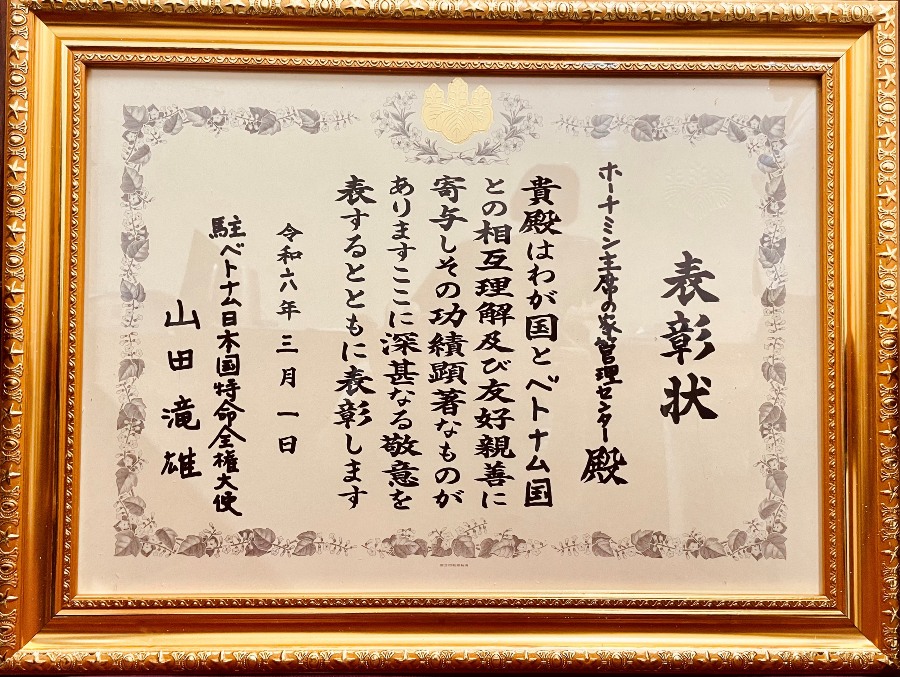 表彰状
ホーチミン主席の家管理センター殿
貴殿はわが国とベトナム国
との相互理解及び友好親善に
寄与しその功績顕著なものが
ありますここに深甚なる敬意を
表するとともに表彰します
令和六年三月一日
駐ベトナム日本国特命全権大使
山田滝雄